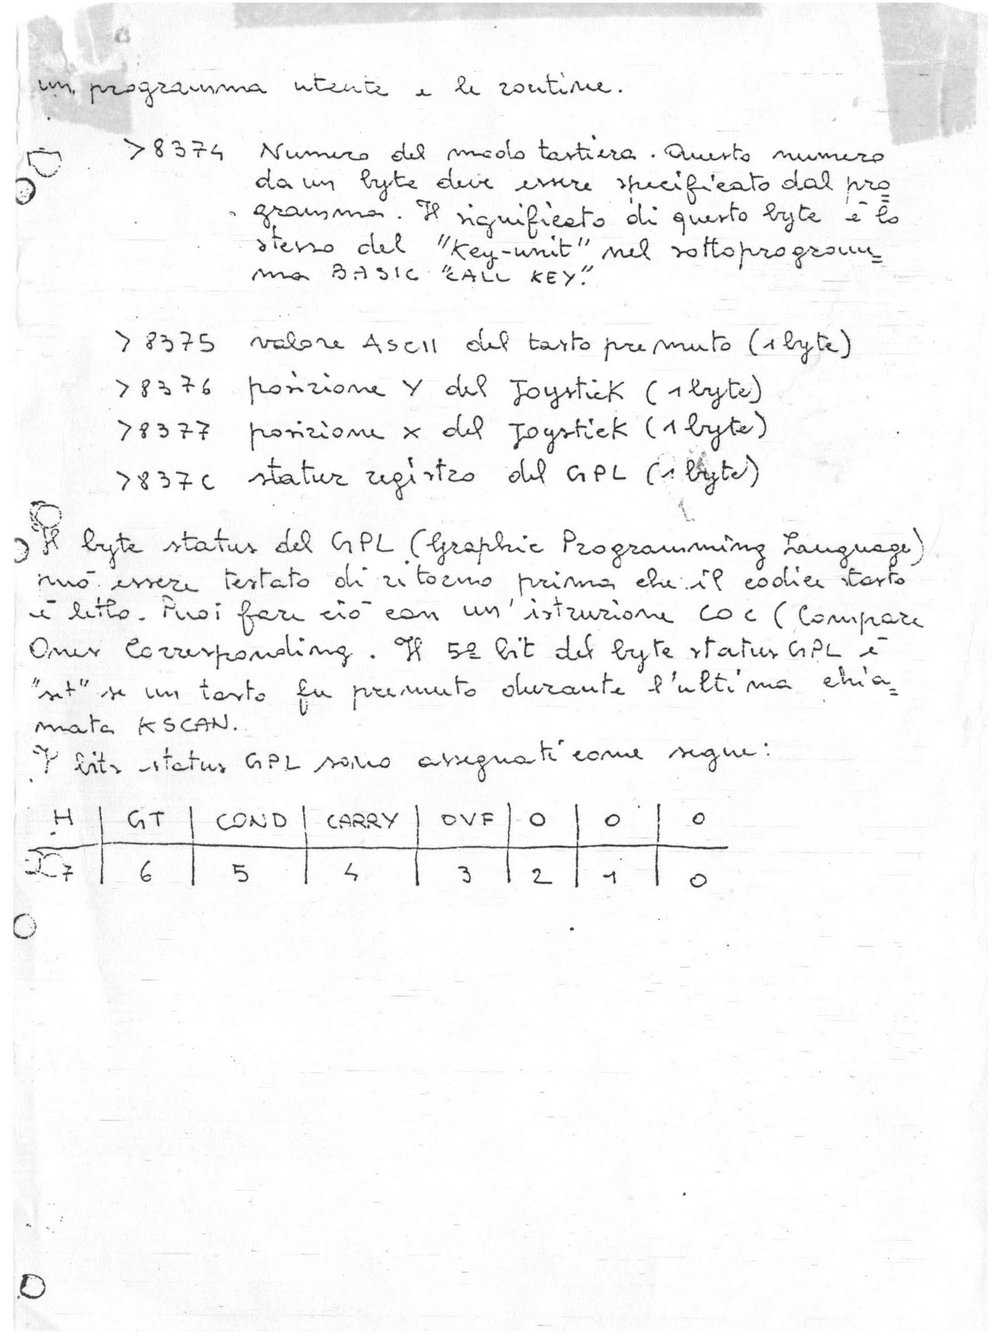 un programma utente e le routine.
>8374 Numero del modo tastiera. Questo numero
da un byte deve essere specificato dal pro=
gramma. Il significato di questo byte è lo
stesso del "Key-unit" nel sottoprogram=
ma BASIC "CALL KEY".
>8375 valore ASCII del tasto premuto (1 byte)
>8376 posizione Y del Joystick (1 byte)
>8377 posizione X del Joystick (1 byte)
>837C status registro del GPL (1 byte)
Il byte status del GPL (Graphic Programming Language)
può essere testato di ritorno prima che il codice tasto
è letto. Puoi fare ciò con un'istruzione COC (Compare
Ones Corresponding. Il 5º bit del byte status GPL è
"set" se un tasto fu premuto durante l'ultima chia=
mata KSCAN.
I bits status GPL sono assegnati come segue:
H | GT | COND | CARRY | OVF | 0 | 0 | 0
7 | 6 | 5 | 4 | 3 | 2 | 1 | 0